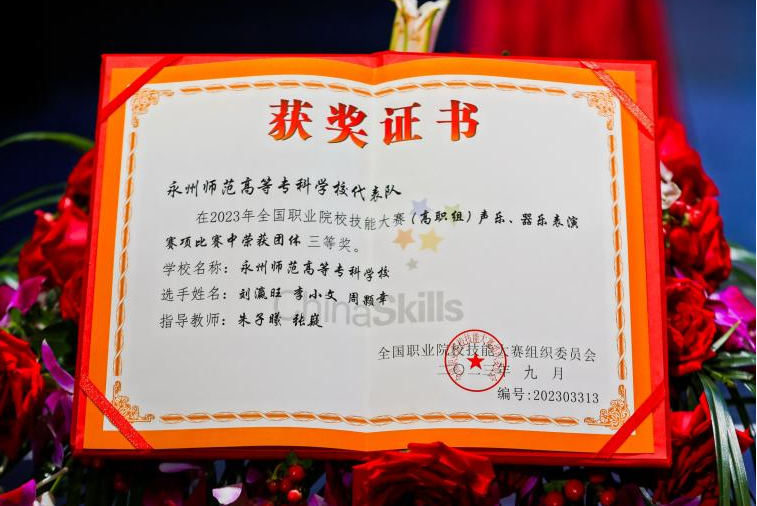 获奖证书
永州师范高等专科学校代表队
在2023年全国职业院校技能大赛（高职组）声乐、器乐表演
赛项比赛中荣获团体 三等奖。
学校名称：永州师范高等专科学校
选手姓名：刘瀛旺 李小文 周颗幸
指导教师：朱子曦 张庭
ChinaSkills
全国职业院校技能大赛组织委员会
二〇二三年 九 月
编号:202303313